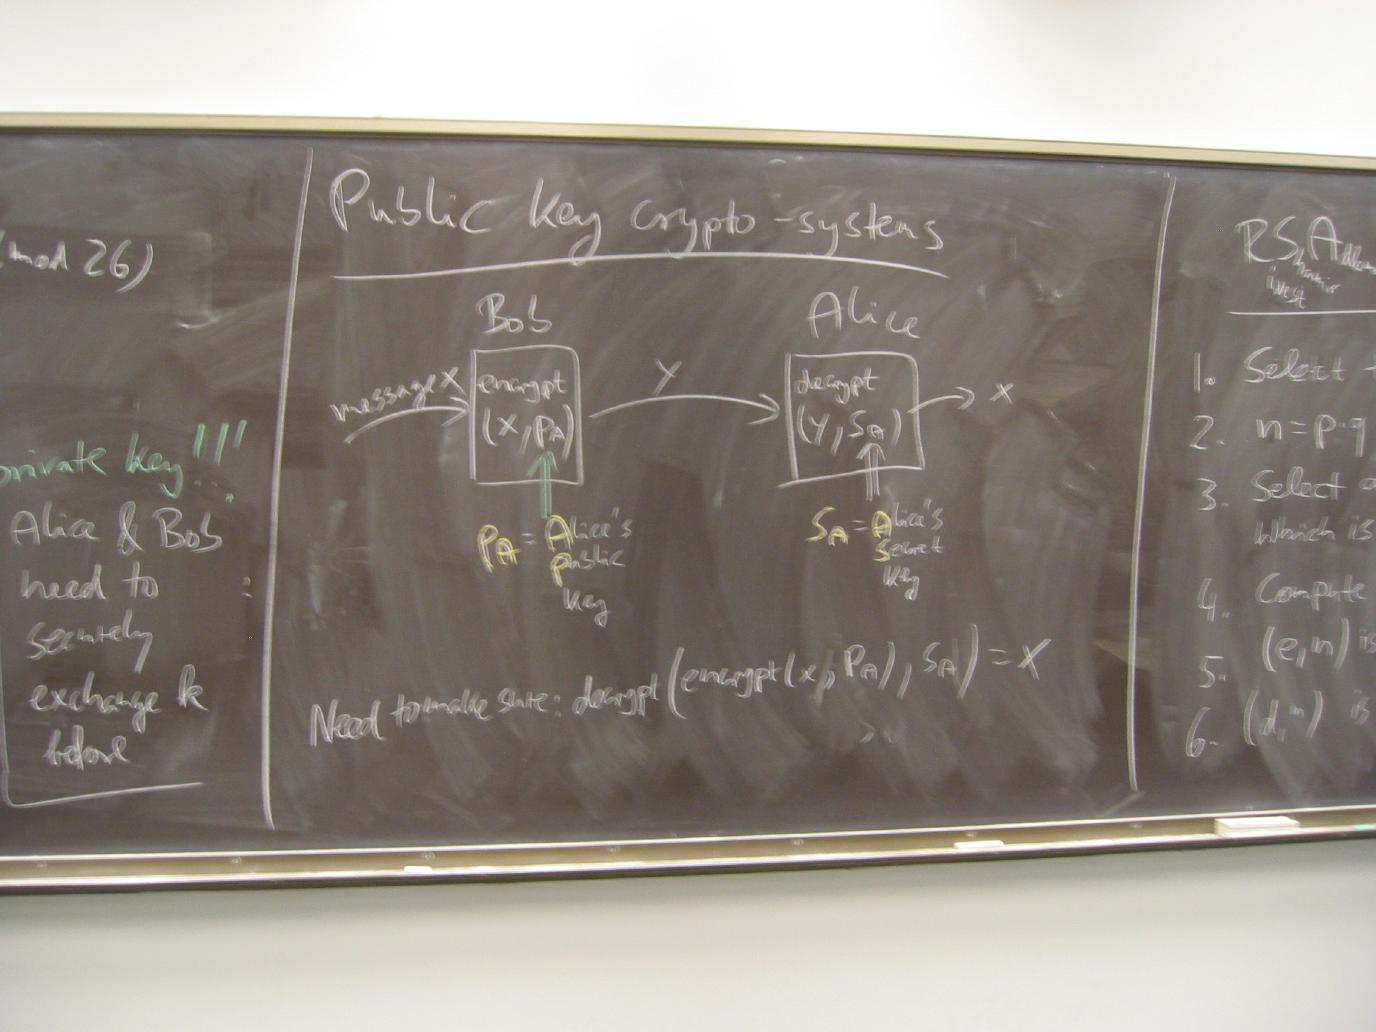 (mod 26)
private key!!!
Alice & Bob
need to
securely
exchange k
before
Public Key crypto-systems
Bob
Alice
message X
encrypt
(X, PA)
Y
decrypt
(Y, SA)
X
PA = Alice's
public
key
SA = Alice's
Secret
key
Need to make sure: decrypt(encrypt(X, PA), SA) = X
RSA
1. Select
2. n = p·q
3. Select
which is
4. Compute
5. (e, n) is
6. (d, n) is